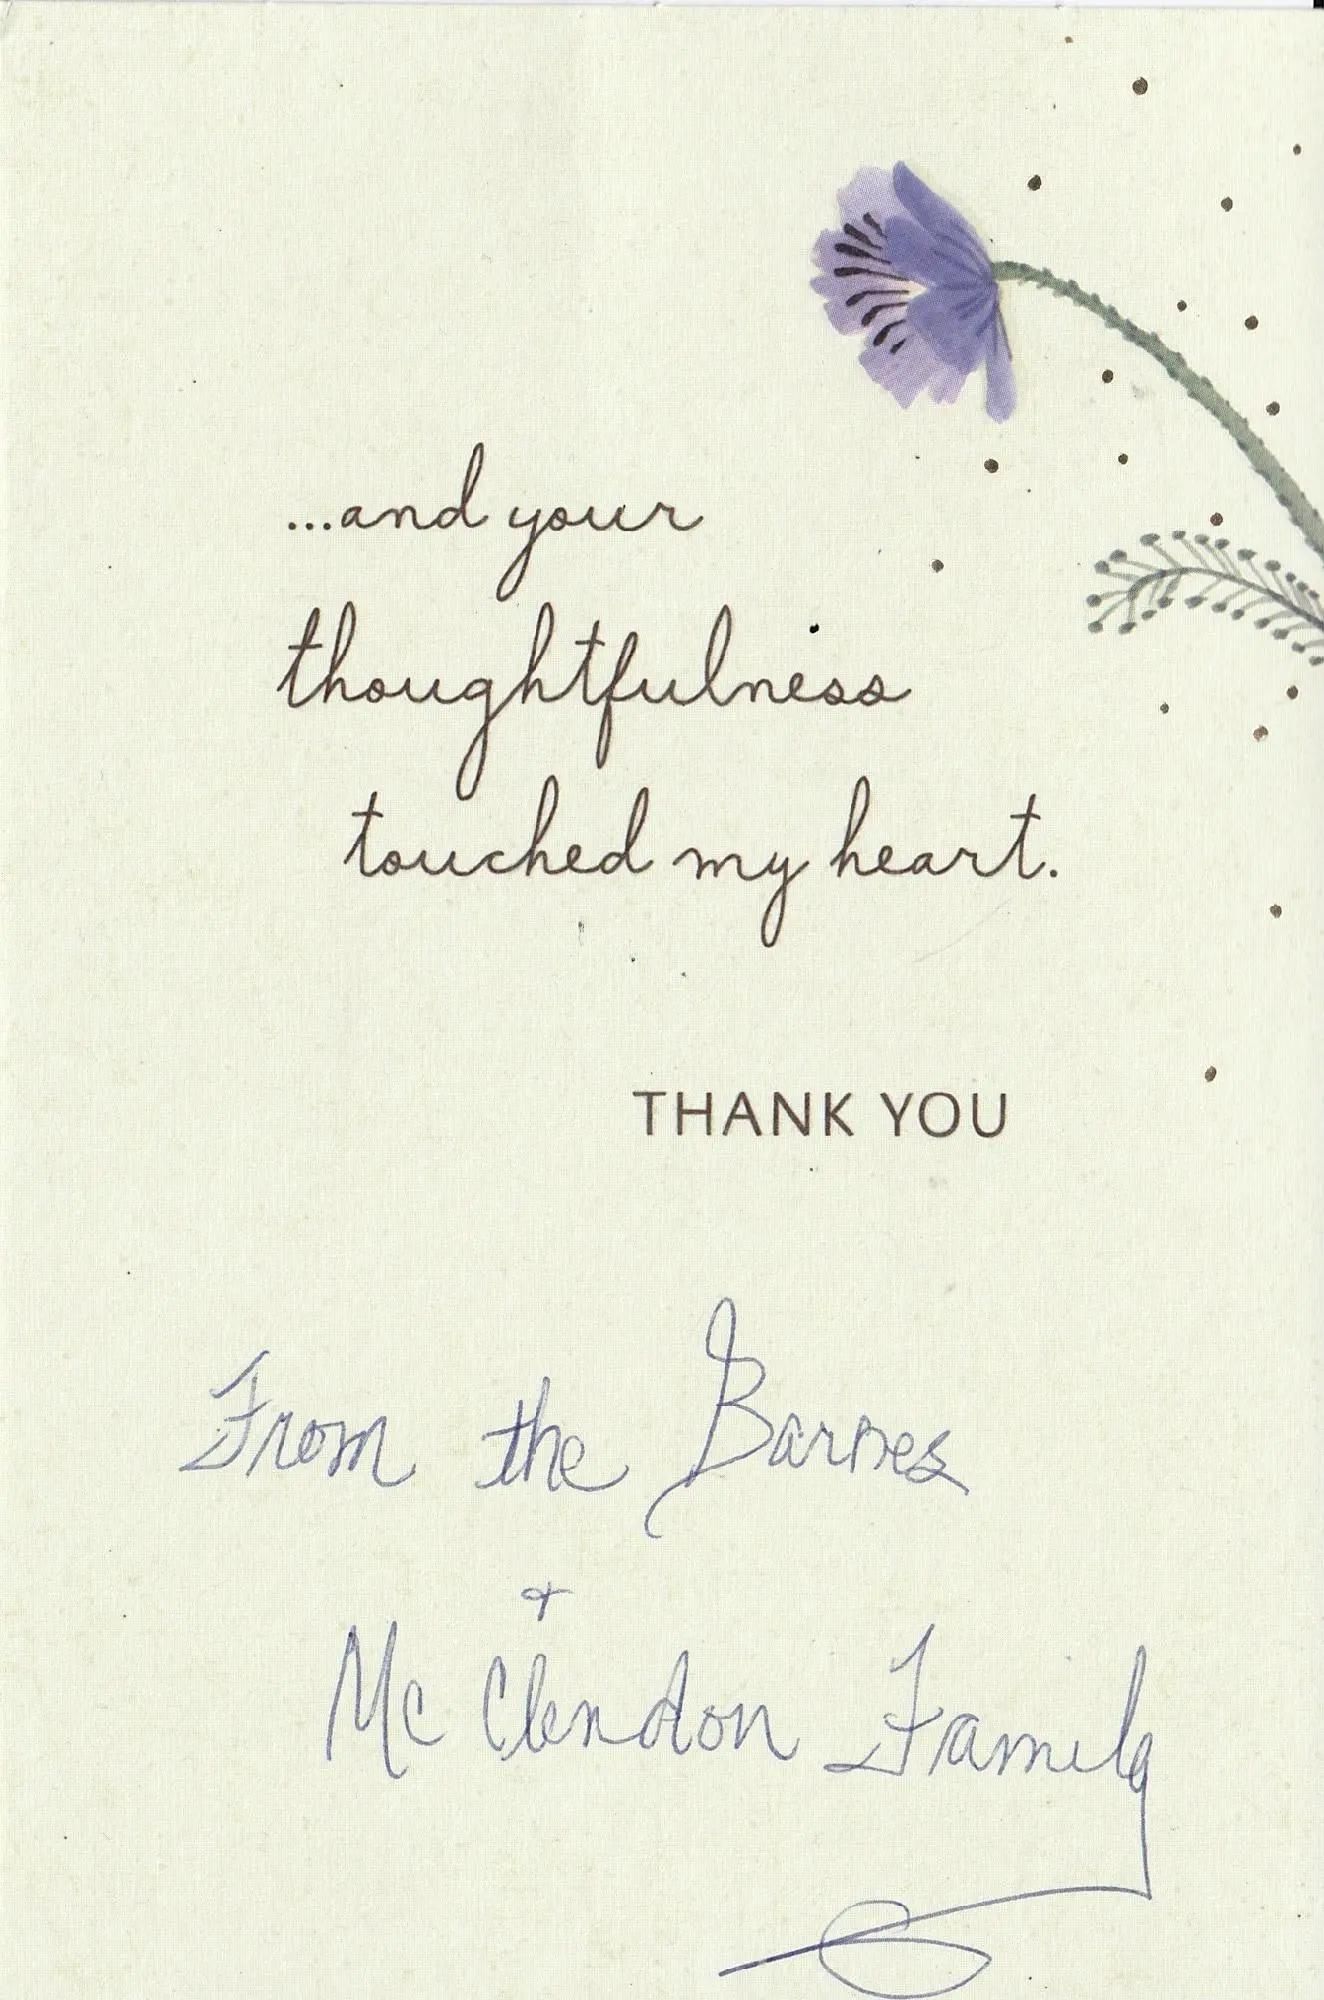 ...and your
thoughtfulness
touched my heart.
THANK YOU
From the Barnes
+
Mc Clendon Family